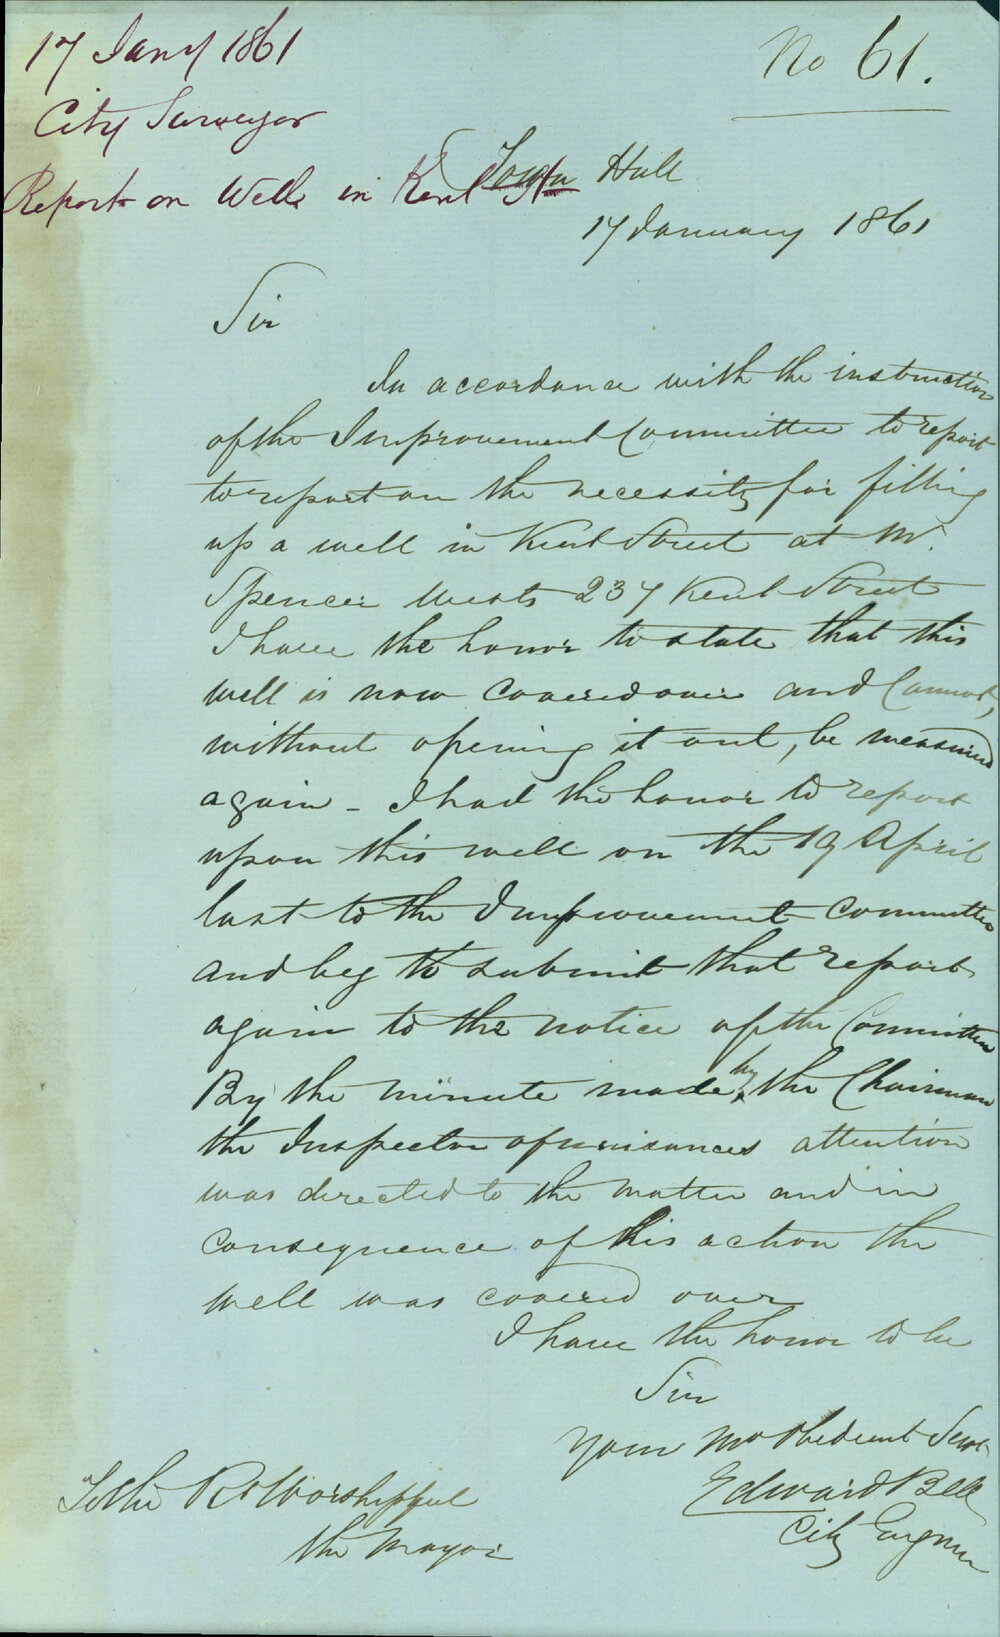 17 Jany 1861
City Surveyor
Report on Wells in Kent St
No 61.
Town Hall
17 January 1861
Sir
In accordance with the instruction
of the Improvement Committee to report
to report on the necessity for filling
up a well in Kent Street at Mr.
Spencer Wests 237 Kent Street
I have the honor to state that this
well is now covered over and Cannot,
without opening it out, be measured
again - I had the honor to report
upon this well on the 19 April
last to the Improvement Committee
and beg to submit that report
again to the notice of the Committee
By the minute made by the Chairman
the Inspector of nuisances attention
was directed to the matter and in
consequence of this action the
well was covered over
I have the honor to be
Sir
Your Mo Obedient Servt
Edward Bell
City Engineer
To the Rt Worshipful
the Mayor